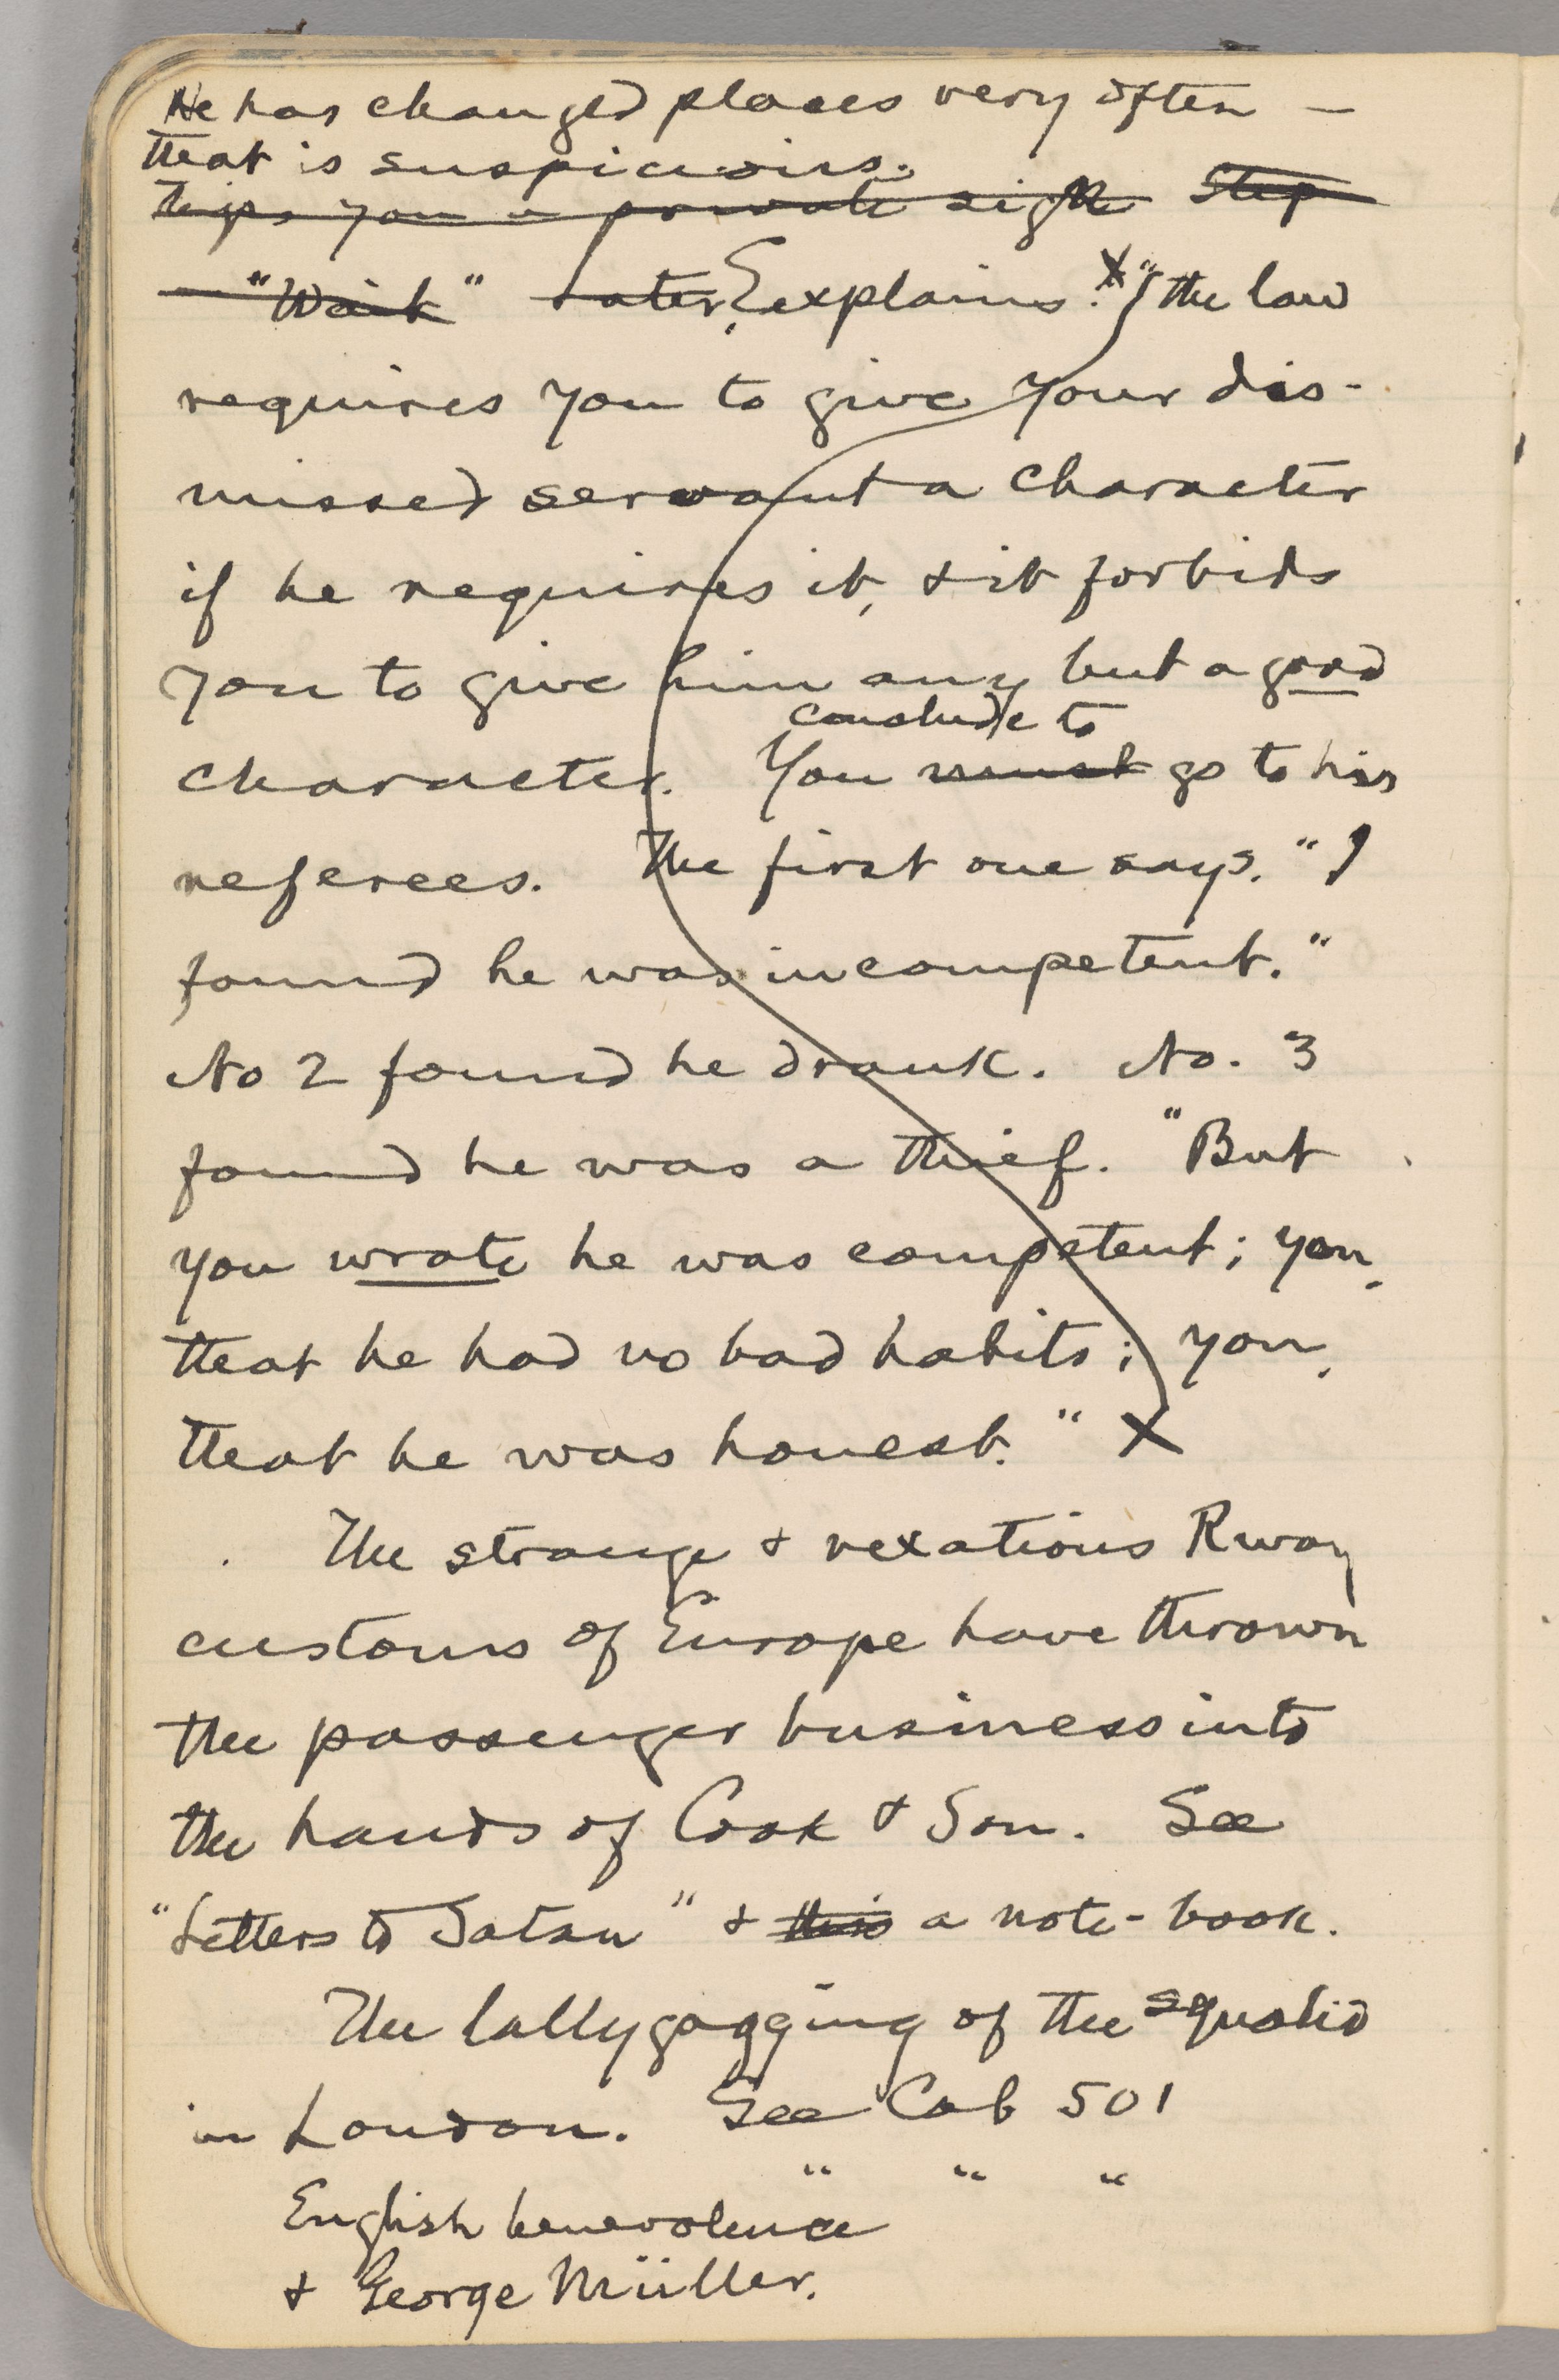 He has changed places very often —
that is suspicious.
tips you a private sign Step
— "Wait" Later, Explains. X "the law
requires you to give your dis-
missed servant a character
if he requires it, & it forbids
you to give him any but a good
conclude to
character. You must go to his
referees. The first one says. "I
found he was incompetent."
No 2 found he drank. No. 3
found he was a thief. "But
you wrote he was competent; you,
that he had no bad habits; you,
that he was honest." X
The strange & vexatious Rway
customs of Europe have thrown
the passenger business into
the hands of Cook & Son. See
"Letters to Satan" & this a note-book.
The lallygagging of the squalid
in London. See Cab 501
" " "
English benevolence
& George Müller.